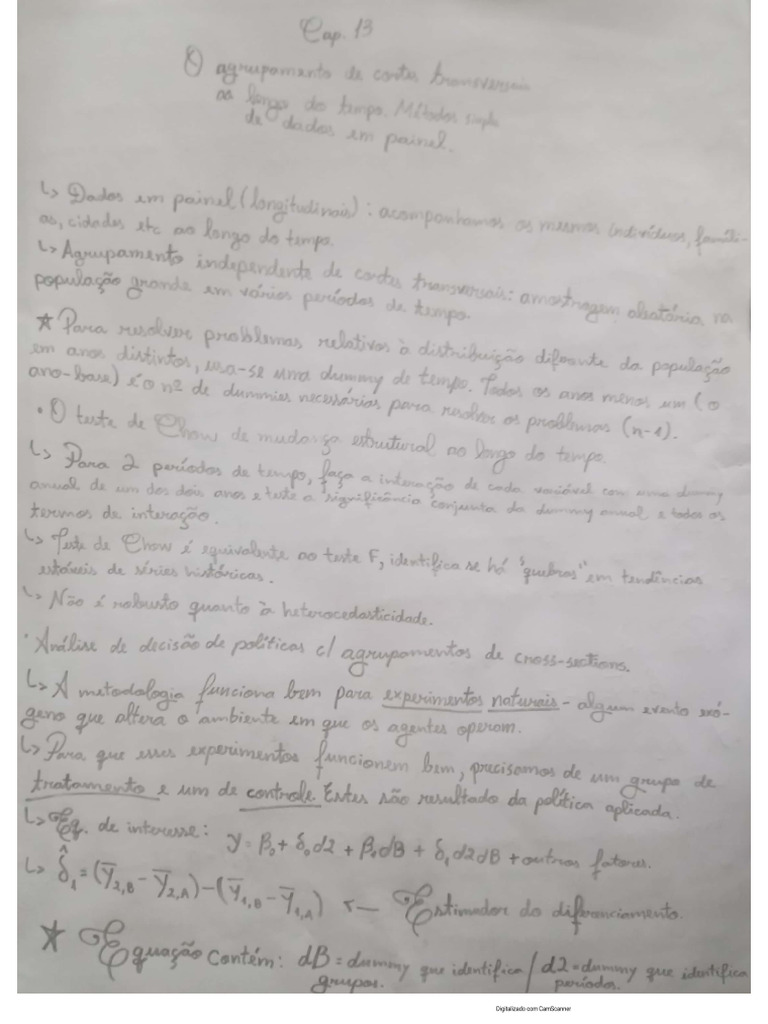 Cap. 13
O agrupamento de cortes transversais
ao longo do tempo. Métodos simples
de dados em painel.
↳ Dados em painel (longitudinais): acompanhamos os mesmos indivíduos, famíli-
as, cidades etc ao longo do tempo.
↳ Agrupamento independente de cortes transversais: amostragem aleatória, na
população grande em vários períodos de tempo.
★ Para resolver problemas relativos à distribuição diferente da população
em anos distintos, usa-se uma dummy de tempo. Todos os anos menos um (o
ano-base) é o nº de dummies necessárias para resolver os problemas (n-1).
• O teste de Chow de mudança estrutural ao longo do tempo.
↳ Para 2 períodos de tempo, faça a interação de cada variável com uma dummy
anual de um dos dois anos e teste a significância conjunta da dummy anual e todos os
termos de interação.
↳ Teste de Chow é equivalente ao teste F, identifica se há "quebras" em tendências
estáveis de séries históricas.
↳ Não é robusto quanto à heterocedasticidade.
• Análise de decisão de políticas c/ agrupamentos de cross-sections.
↳ A metodologia funciona bem para experimentos naturais - algum evento exó-
geno que altera o ambiente em que os agentes operam.
↳ Para que esses experimentos funcionem bem, precisamos de um grupo de
tratamento e um de controle. Estes são resultado da política aplicada.
↳ Eq. de interesse: y = β₀ + δ₀d2 + β₁dB + δ₁d2dB + outros fatores.
↳ δ̂₁ = (ȳ₂,B - ȳ₂,A) - (ȳ₁,B - ȳ₁,A) ← Estimador do diferenciamento.
★ Equação contém: dB = dummy que identifica / d2 = dummy que identifica
grupos. períodos.
Digitalizado com CamScanner